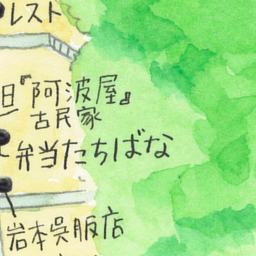 レスト
『阿波屋』
古民家
弁当たちばな
岩本呉服店